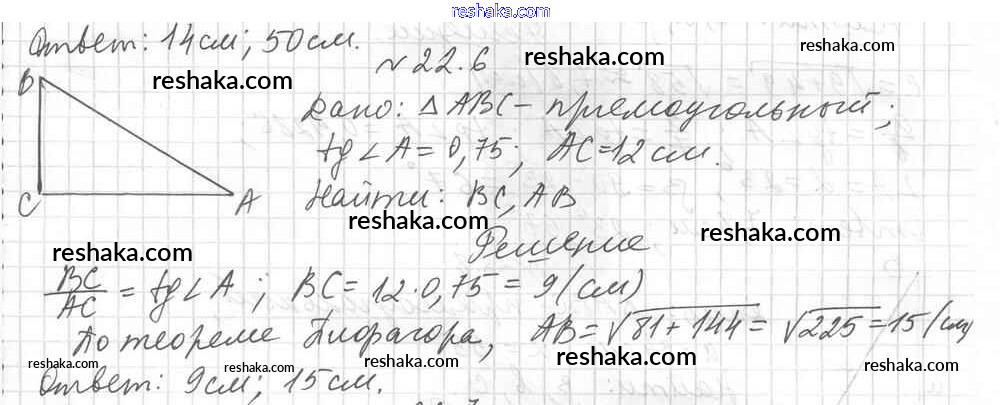 reshaka.com
Ответ: 14 см; 50 см.
reshaka.com reshaka.com
№ 22.6
B
Дано: △ ABC – прямоугольный;
tg∠A = 0,75; AC = 12 см.
C A
Найти: BC, AB
reshaka.com
Решение
reshaka.com reshaka.com
BC/AC = tg∠A; BC = 12·0,75 = 9 (см)
По теореме Пифагора, AB = √81 + 144 = √225 = 15 (см)
reshaka.com reshaka.com reshaka.com reshaka.com
Ответ: 9 см; 15 см.